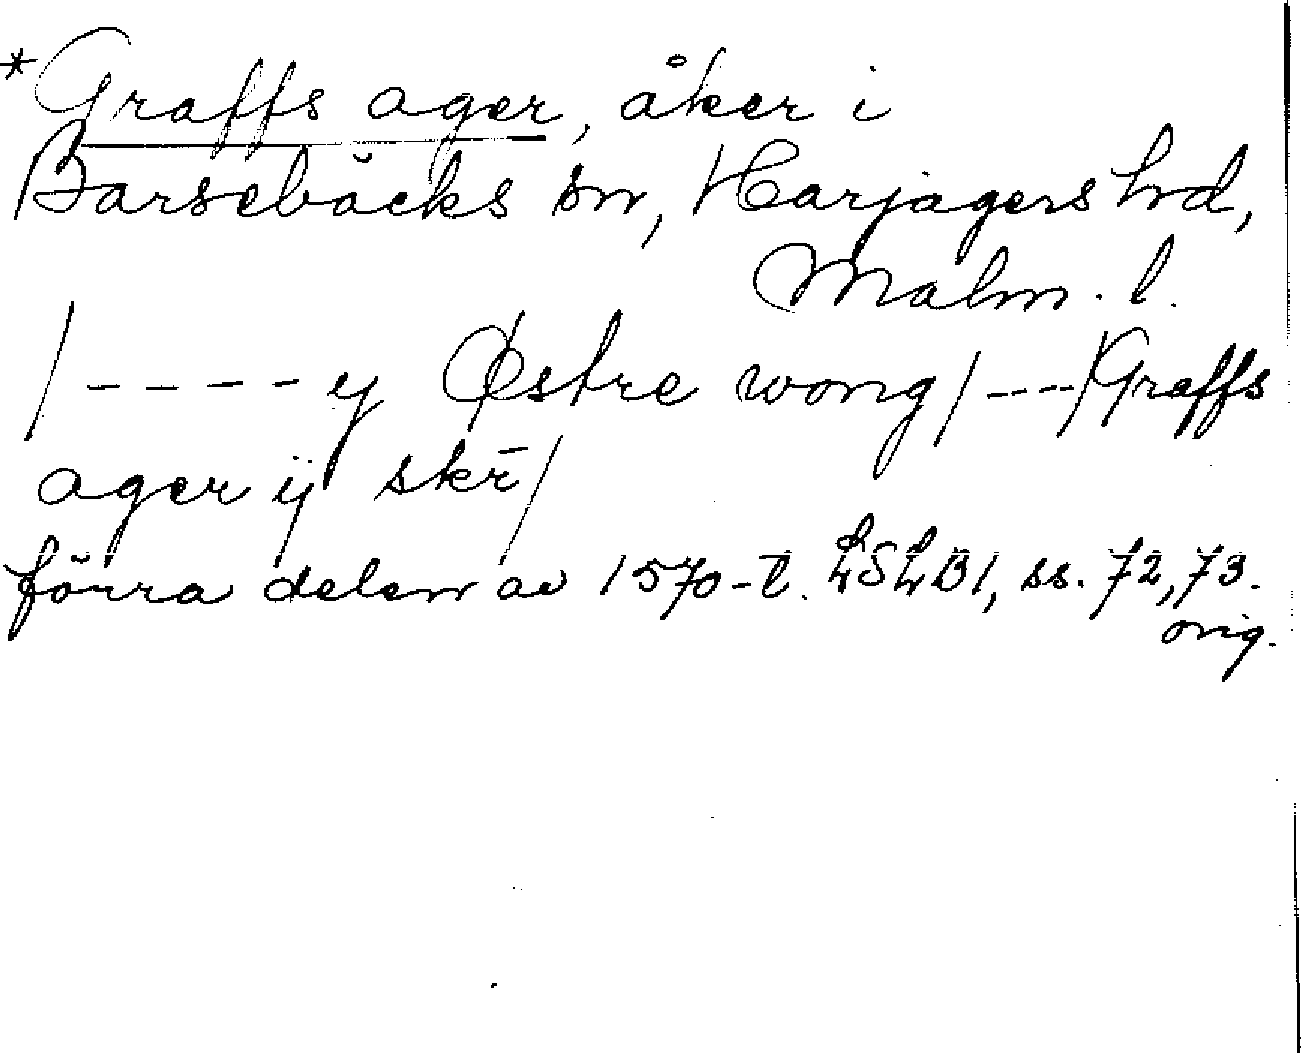 *Graffs ager, åker i
Barsebäcks sn, Harjagers hd,
Malm. l.
/----- y Østre wong/---/Graffs
ager ij skr̄/
förra delen av 1570-t. LSLB1, ss. 72, 73.
orig.